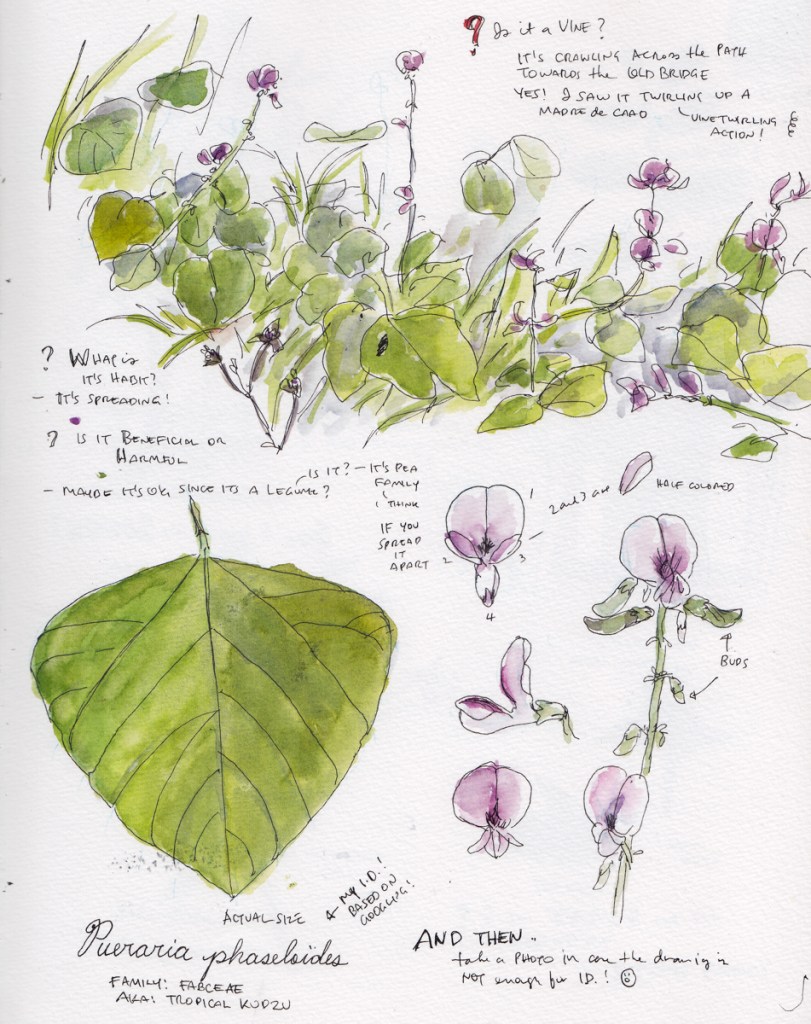 ? Is it a VINE?
IT'S CRAWLING ACROSS the PATH
TOWARDS the OLD BRIDGE
YES! I SAW IT TWIRLING UP A
MADRE de CAAO
VINE TWIRLING
ACTION!
? WHAT is
IT'S HABIT?
- IT'S SPREADING!
? IS IT BENEFICIAL OR
HARMFUL
- MAYBE IT'S OK, SINCE IT'S A LEGUME?
IS IT? - IT'S PEA
FAMILY
I THINK
IF YOU
SPREAD
IT
APART
1
2
3
4
2 and 3 are
HALF COLORED
BUDS
ACTUAL SIZE
MY I.D.!
BASED ON
GOOGLING!
Pueraria phaseloïdes
FAMILY: FABCEAE
AKA: TROPICAL KUDZU
AND THEN..
take a PHOTO in case the drawing is
NOT enough for I.D.!